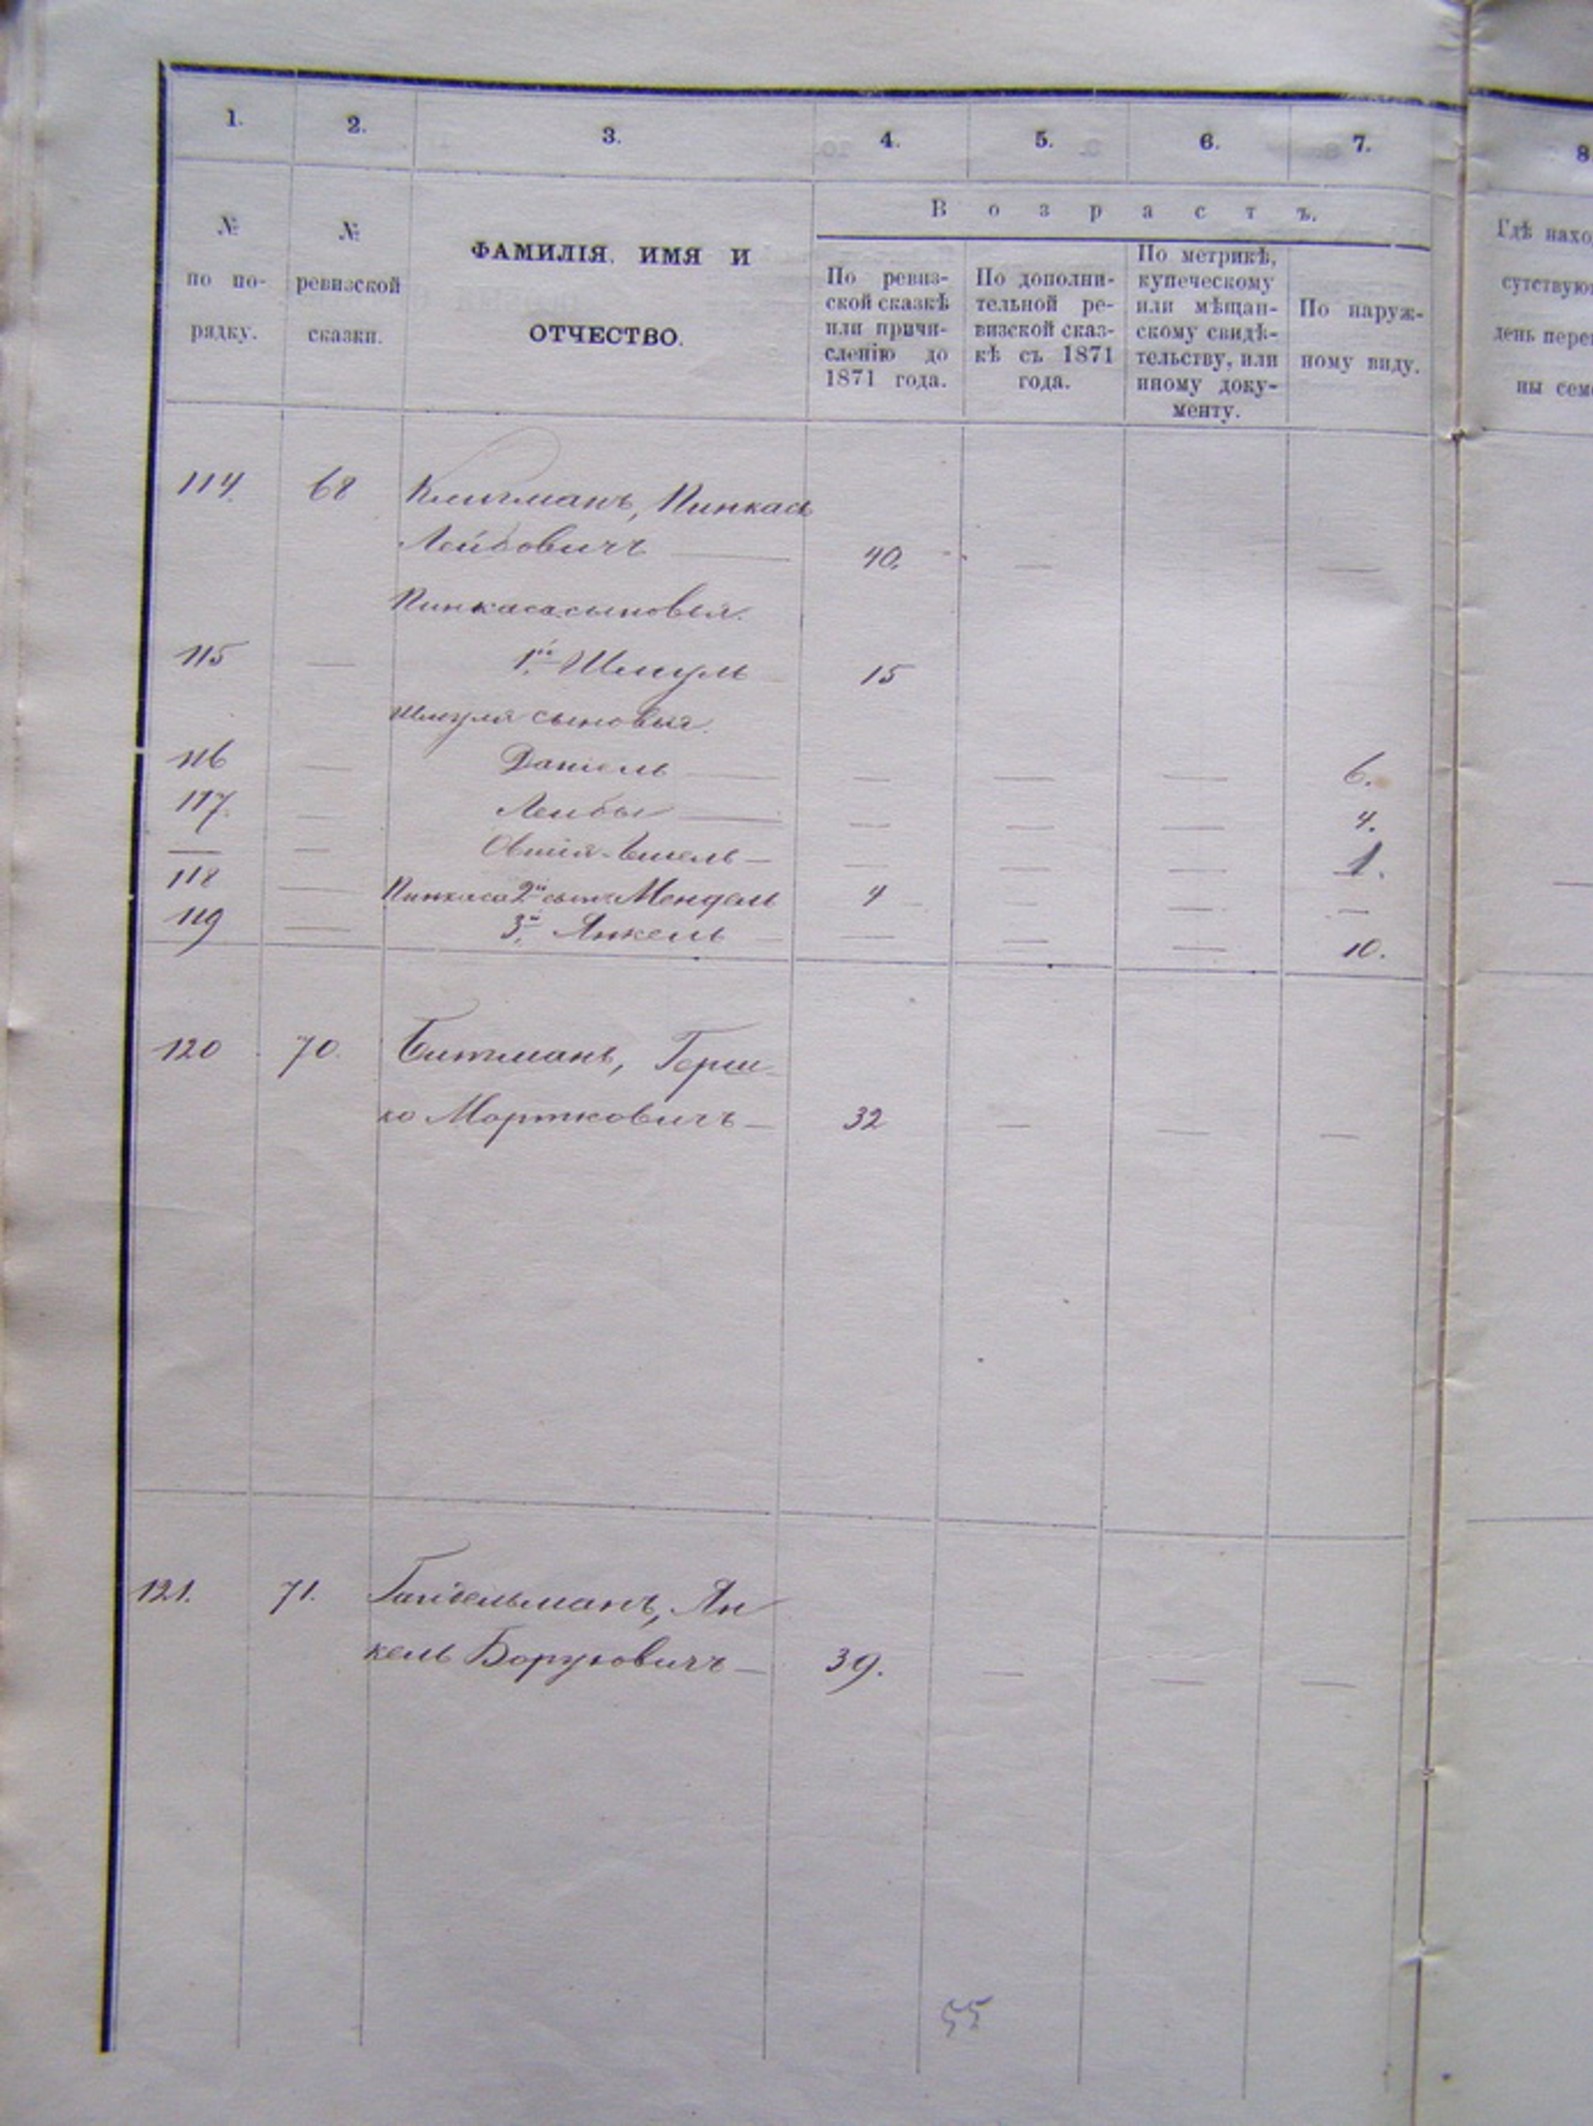 1. 2. 3. 4. 5. 6. 7. 8
№ по по-рядку.
№ ревизской сказки.
ФАМИЛІЯ, ИМЯ И
ОТЧЕСТВО.
Возрастъ.
По ревиз-
ской сказкѣ
или причи-
сленію до
1871 года.
По дополни-
тельной ре-
визской сказ-
кѣ съ 1871
года.
По метрикѣ,
купеческому
или мѣщан-
скому свидѣ-
тельству, или
иному доку-
менту.
По наруж-
ному виду.
Гдѣ нахо
сутствую
день пере
ны сем
114. 68 Клигманъ, Пинкасъ
Лейбовичъ — 40. — —
Пинкаса сыновья.
115 — 1й Шмуль 15
Шмуля сыновья.
116 — Даніель — — — — 6.
117. — Лейбы — — — — 4.
— — Овшія- — — — — 1.
118 — Пинкаса 2й сынъ Мендель 4 — — —
119 — 3й Янкель — — — — 10.
120 70. Битманъ, Герш-
ко Мортковичъ — 32 — — —
121. 71. Гайзельманъ, Ян
кель Боруховичъ — 39. — — —
55